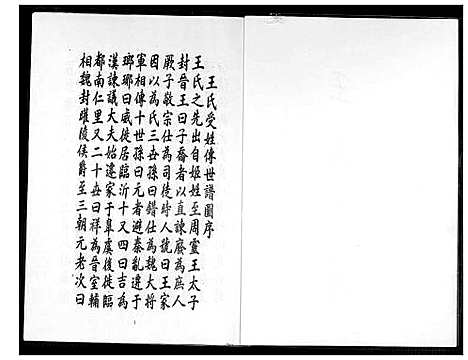 王氏受姓傳世譜圖序
王氏之先出自姬姓至周靈王太子
封晉王曰子喬者以直諫廢為庶人
厥子敬宗仕為司徒時人號曰王家
因以為氏三世孫曰錯仕為魏大將
軍相傳十世孫曰元者避秦亂遷于
瑯瑘曰威徙居臨沂十又四曰吉為
漢諫議大夫始遷家于皐虞後徙臨
都南仁里又二十世曰祥為晉室輔
相魏封睢陵侯爵至三朝元老次曰
1